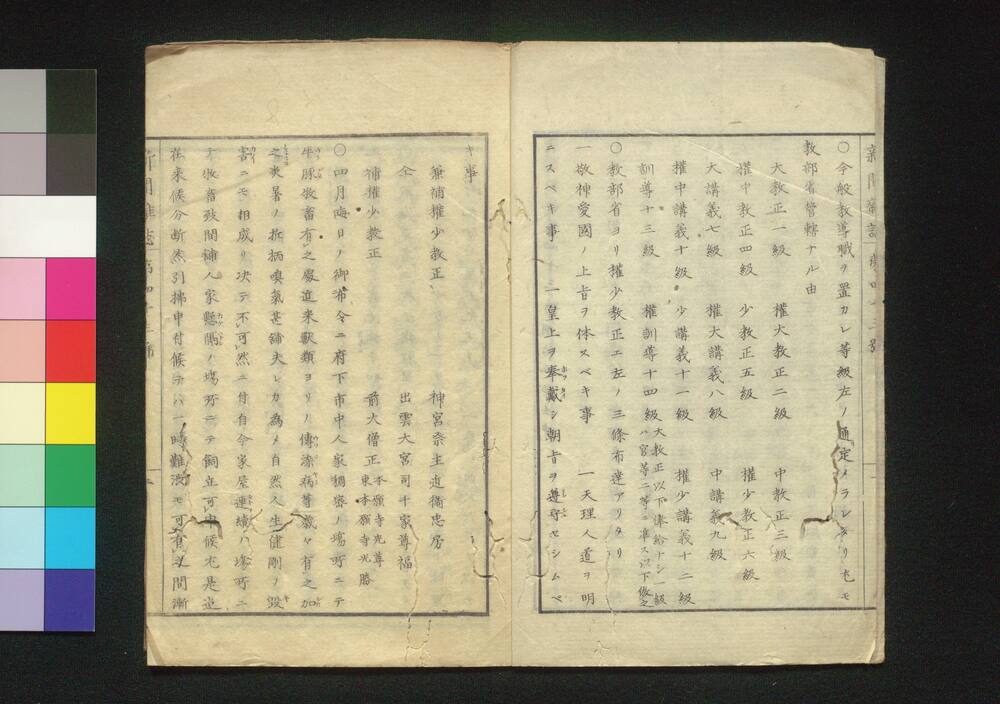 〇今般教導職ヲ置カレ等級左ノ通定メラレタリ尤モ
教部省管轄ナル由
大教正一級　權大教正二級　中教正三級
權中教正四級　少教正五級　權少教正六級
大講義七級　權大講義八級　中講義九級
權中講義十級　少講義十一級　權少講義十二級
訓導十三級　權訓導十四級
大教正以下俸給ナシ一級
ハ官等二等ニ準ス以下倣之
〇教部省ヨリ權少教正エ左ノ三條布達アリタリ
一敬神愛國ノ上旨ヲ体スベキ事　一天理人道ヲ明
ニスベキ事　一皇上ヲ奉戴シ朝旨ヲ遵守セシムベ
キ事
兼補權少教正　神宮祭主近衞忠房
仝　出雲大宮司千家尊福
補權少教正　前大僧正
本願寺光尊
東本願寺光勝
〇四月晦日ノ御布令ニ府下市中人家稠密ノ塲所ニテ
牛豚牧畜有之處近来獸類ヨリノ傳染病等數々有之加
之炎暑ノ折柄嗅氣甚鋪夫レカ為メ自然人生健剛ノ毀
害ニモ相成リ决テ不可然ニ付自今家屋連續ハ塲所ニ
テ牧畜致間鋪人家懸隔ノ塲所ニテ飼立可申候尤是迄
在来候分断然引拂申付候テハ一時難渋モ可有之間漸